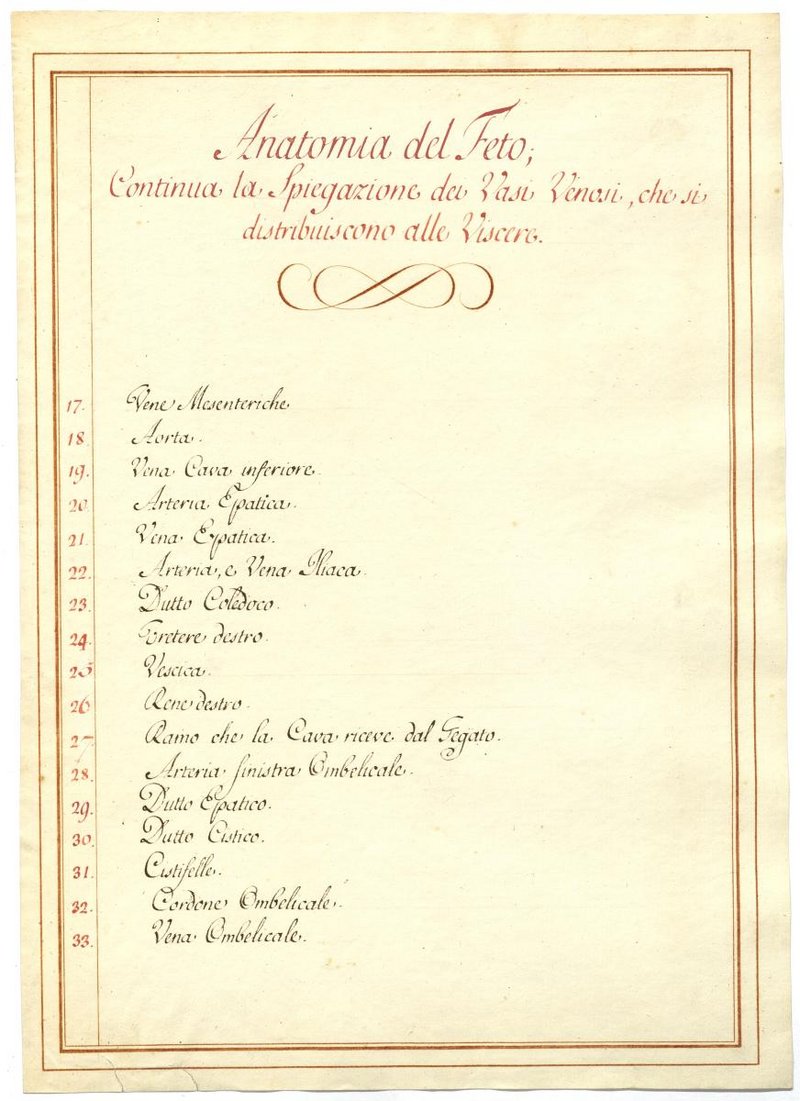 Anatomia del Feto;
Continua la Spiegazione dei Vasi Venosi, che si
distribuiscono alle Viscere.
17. Vene Mesenteriche
18. Aorta.
19. Vena Cava inferiore.
20. Arteria Epatica.
21. Vena Epatica.
22. Arteria, e Vena Iliaca.
23. Dutto Coledoco.
24. Uretere destro.
25 Vescica.
26 Rene destro.
27 Ramo che la Cava riceve dal Fegato.
28. Arteria sinistra Ombelicale.
29. Dutto Epatico.
30. Dutto Cistico.
31. Cistifelle.
32. Cordone Ombelicale.
33. Vena Ombelicale.